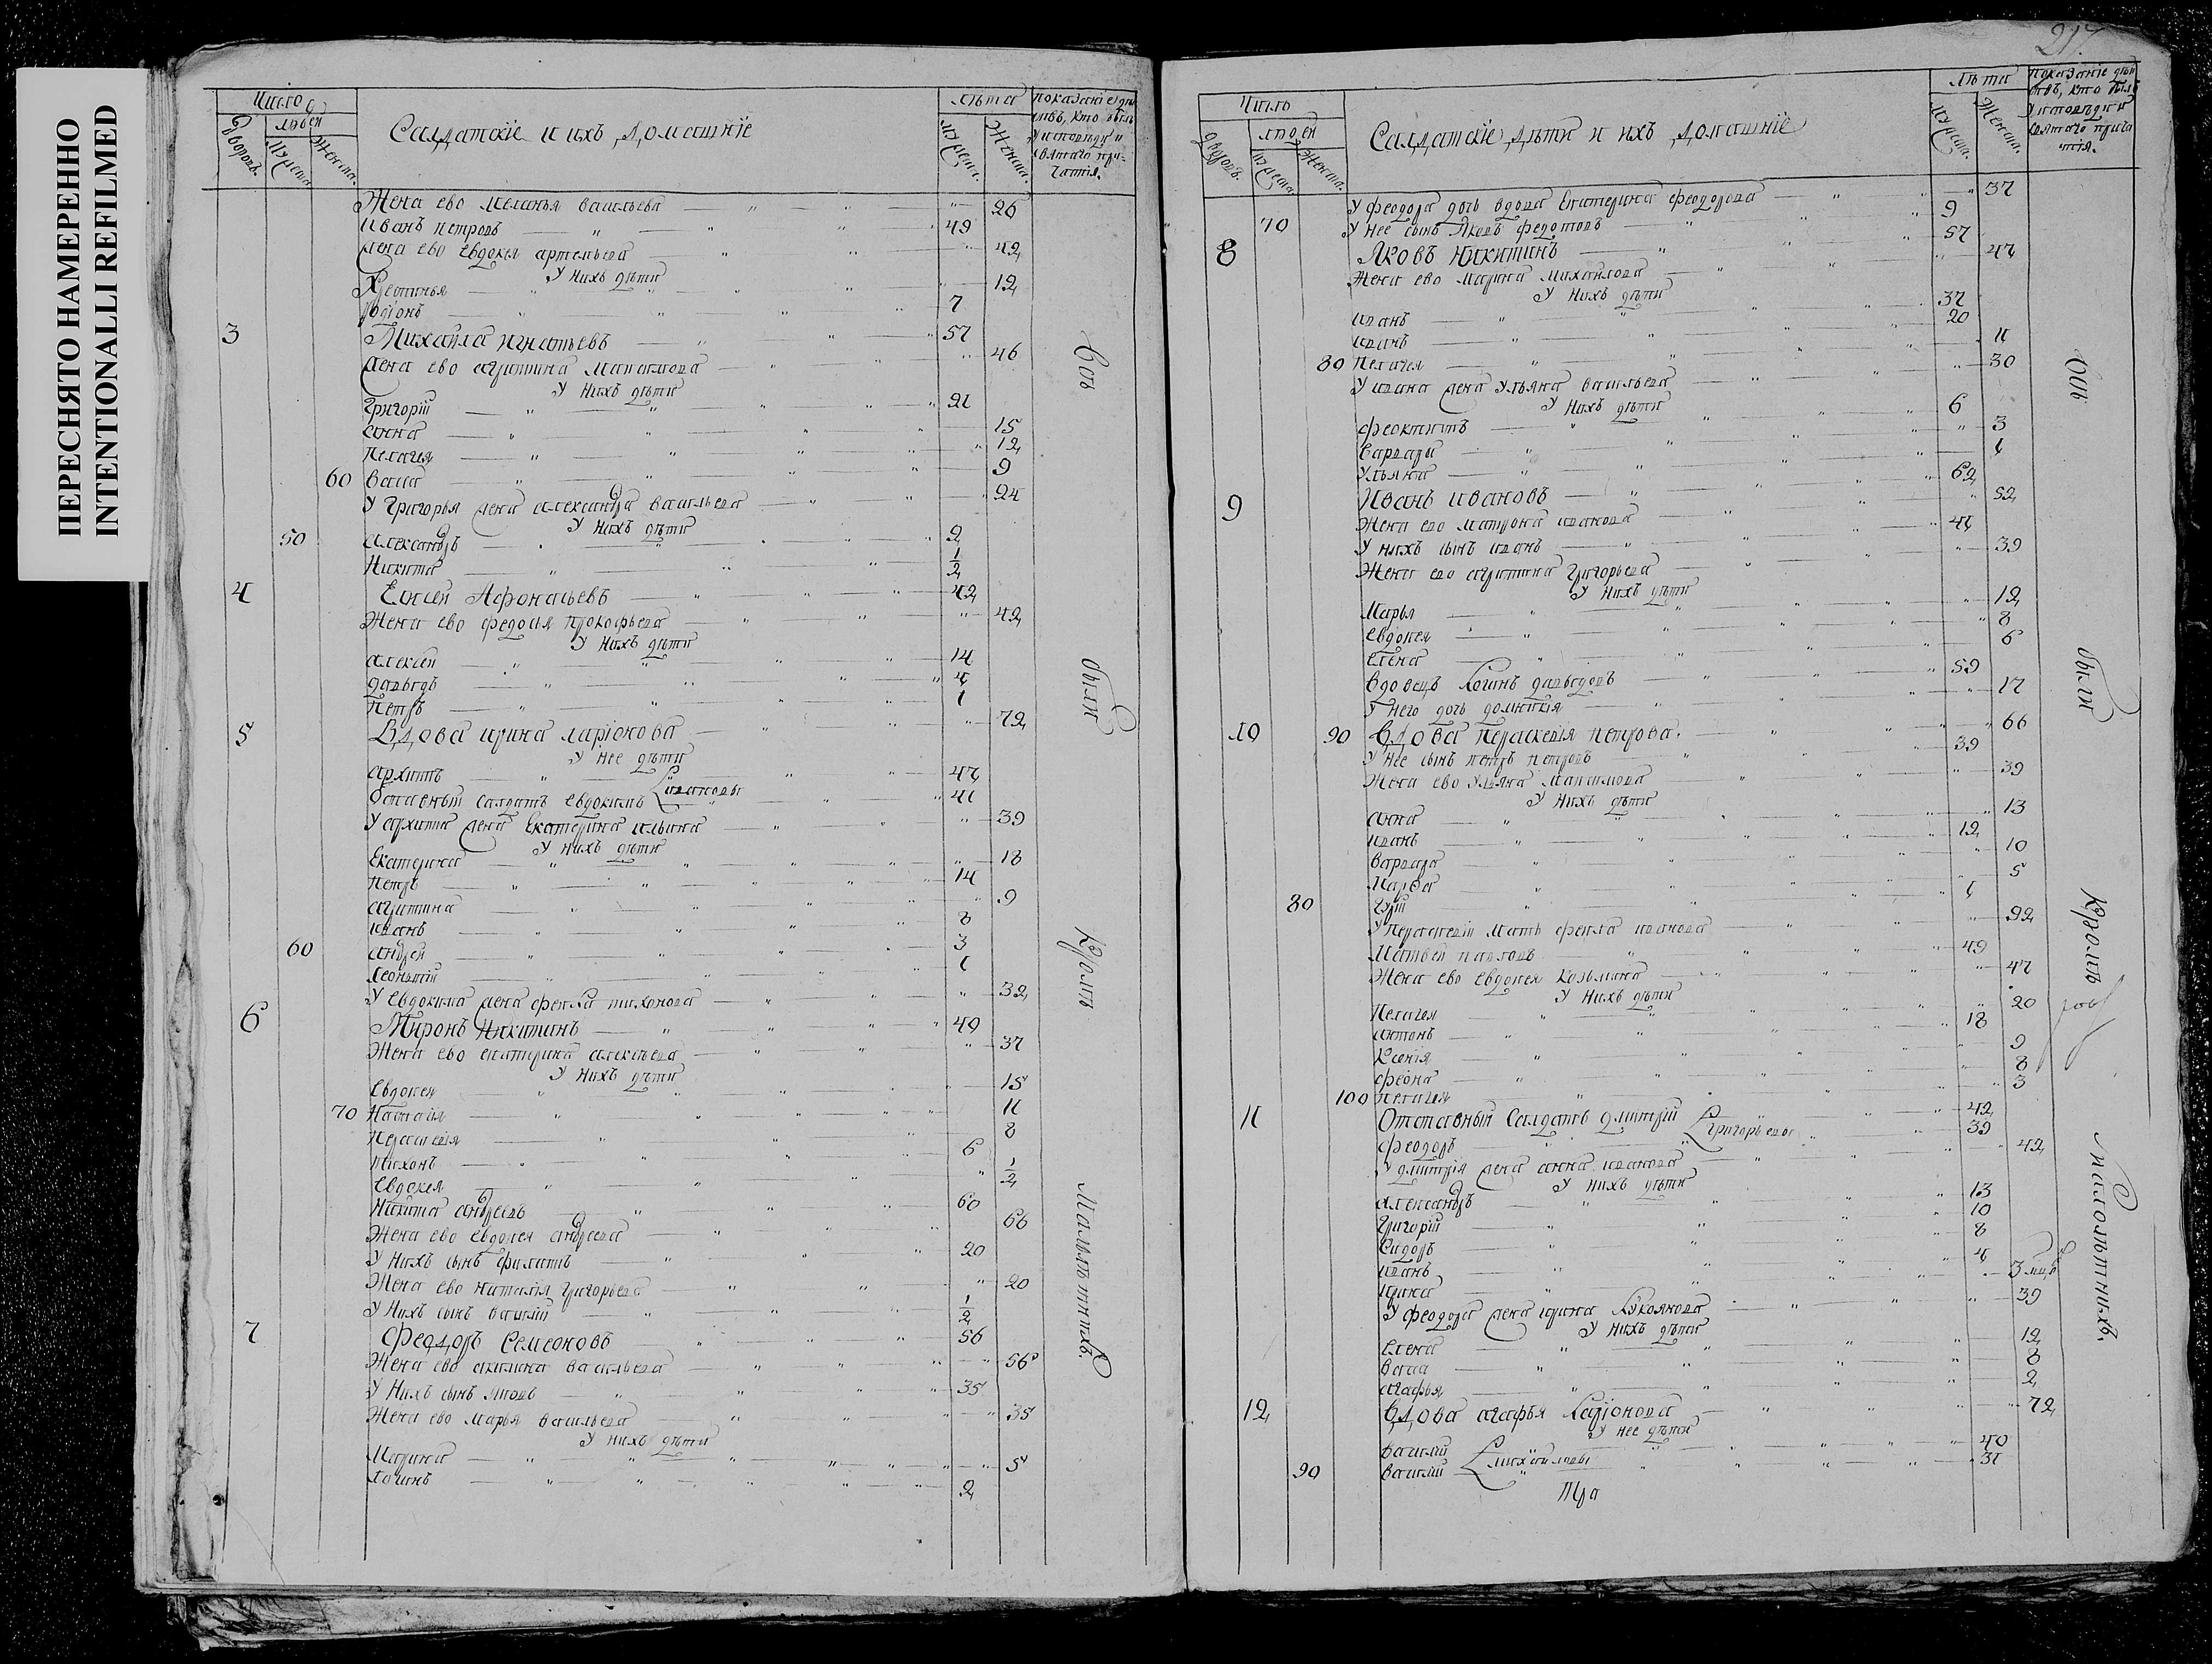 ПЕРЕСНЯТО НАМЕРЕННО
INTENTIONALLI REFILMED
Число
людей
Дворовъ.
Мужеска
Женска.
Салдатскіе и ихъ домашніе
Лѣта
Мужеска.
Женска.
показаніе дѣй
ствъ, кто былъ
у исповеди и
святаго при-
частія.
Жена ево Меланья васильева 26
Иванъ петровъ 49
жена ево Евдокея артемьева 42
У нихъ дѣти
Хрестинья 12
родіонъ 7
3 Михайла игнатьевъ 57
жена ево агрипина Максимова 46
У нихъ дѣти
Григорій 21
анна 15
пелагея 12
60 васса 9
У Григорья жена александра васильева 24
У нихъ дѣти
50 александръ 2
Никита 1/2
4 Елисей Афонасьевъ 42
Жена ево федосья прокофьева 42
У нихъ дѣти
алексей 14
давыдъ 4
петръ 1
5 Вдова ирина ларіонова 72
У нее дѣти
архипъ 47
отставный салдатъ евдокимъ ивановы 41
У архипа жена Екатерина ильина 39
У нихъ дѣти
Екатерина 18
петръ 14
агрипина 9
иванъ 8
60 андрей 3
леонтій 1
У Евдокима жена фекла тихонова 32
6 Миронъ Никитинъ 49
Жена ево екатерина алексѣева 37
У нихъ дѣти
Евдокея 15
70 Настасія 11
перасковія 8
тихонъ 6
Евдокея 1/2
Никита андреевъ 60
Жена ево евдокея андреева 66
У нихъ сынъ филатъ 20
Жена ево наталія григорьева 20
У нихъ сынъ василій 1/2
7 Феодоръ Семеоновъ 56
Жена ево акилина васильева 56
У нихъ сынъ яковъ 35
Жена ево марья васильева 35
У нихъ дѣти
Марина 5
логинъ 2
Всѣ
были
Кромѣ
Малолѣтнихъ.
217
Число
людей
Дворовъ.
Мужеска.
Женска.
Салдатскіе дѣти и ихъ домашніе
Лѣта
Мужеска.
Женска.
показаніе дѣй
ствъ, кто былъ
у исповеди и
святаго прича
стія.
У феодора дочь вдова Екатерина феодорова 37
70 У нее сынъ яковъ федотовъ 9
8 Яковъ Никитинъ 57
Жена ево марина михайлова 47
У нихъ дѣти
иванъ 37
иванъ 20
80 пелагея 11
У ивана жена Ульяна васильева 30
У нихъ дѣти
феоктистъ 6
варвара 3
Ульяна 1
9 Иванъ ивановъ 62
Жена ево матрона иванова 52
У нихъ сынъ иванъ 41
Жена ево агрипина григорьева 39
У нихъ дѣти
марья 12
евдокея 8
елена 6
вдовецъ логинъ давыдовъ 59
У него дочь домникія 17
10 90 Вдова перасковія петрова. 66
У нее сынъ петръ петровъ 39
Жена ево Ульяна максимова 39
У нихъ дѣти
анна 13
иванъ 12
варвара 10
марѳа 5
80 гурій 1
У перасковіи мать фекла иванова 92
Матвей павловъ 49
Жена ево Евдокея козьмина 47
У нихъ дѣти
пелагея 20
антонъ 18
ксенія 9
феона 8
100 пелагея 3
11 Отставный салдатъ дмитрій Григорьевы 42
феодоръ 39
У дмитрія жена анна иванова 42
У нихъ дѣти
александръ 13
григорій 10
сидоръ 8
иванъ 4
ирина 3 мцв
У феодора жена ирина лукоянова 39
У нихъ дѣти
елена 12
васса 8
агафья 2
12 Вдова агафья ларіонова 72
У нее дѣти
василій михайловы 40
90 василій 31
Тра
Всѣ
были
Кромѣ
Малолѣтнихъ.